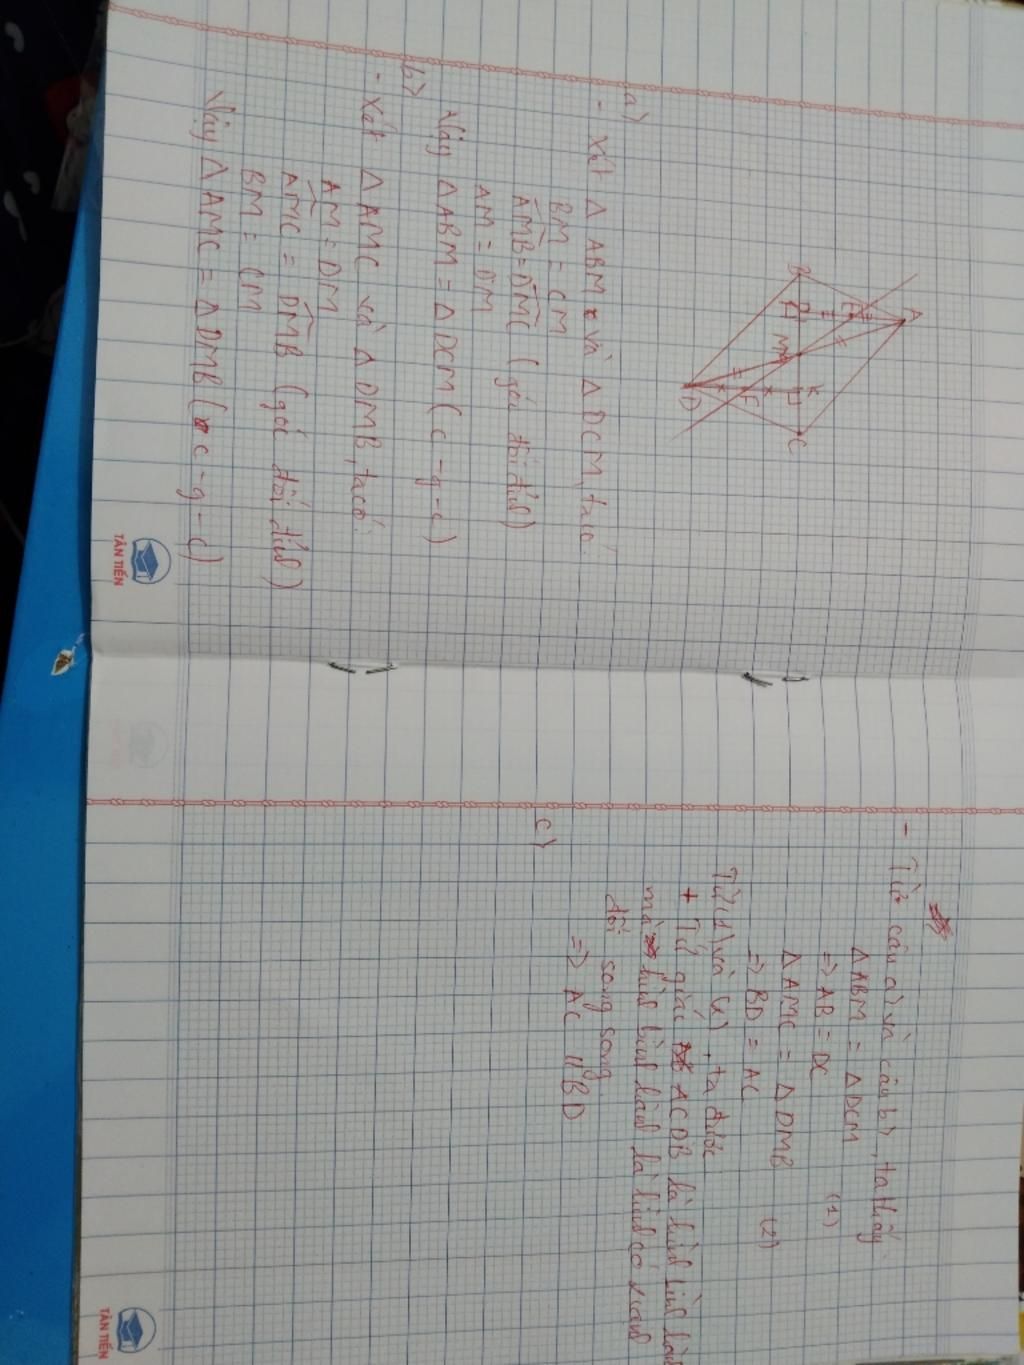 A
E
B
M
K
C
F
D
a)
- Xét Δ ABM và Δ DCM, ta có:
BM = CM
AMB = DMC (góc đối đỉnh)
AM = DM
Vậy Δ ABM = Δ DCM (c - g - c)
b)
- Xét Δ AMC và Δ DMB, ta có:
AM = DM
AMC = DMB (góc đối đỉnh)
BM = CM
Vậy Δ AMC = Δ DMB (c - g - c)
TÂN TIẾN
- Từ câu a) và câu b), ta thấy:
Δ ABM = Δ DCM
=> AB = DC (1)
Δ AMC = Δ DMB
=> BD = AC (2)
Từ (1) và (2), ta được
+ Tứ giác ACDB là hình bình hành
mà hình bình hành là hình có 2 cạnh
đối song song
=> AC // BD
c)
TÂN TIẾN